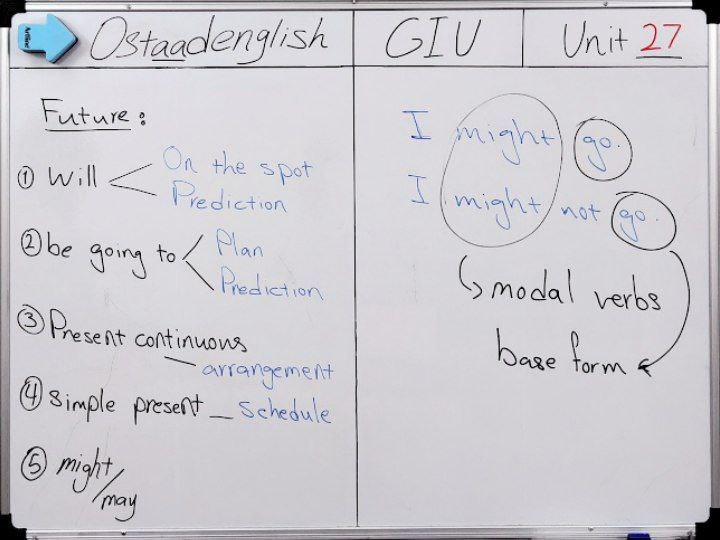 Ostaadenglish
GIU
Unit 27
Future:
① Will
On the spot
Prediction
② be going to
Plan
Prediction
③ Present continuous
— arrangement
④ Simple present _ Schedule
⑤ might/
may
I might go.
I might not go.
modal verbs
base form